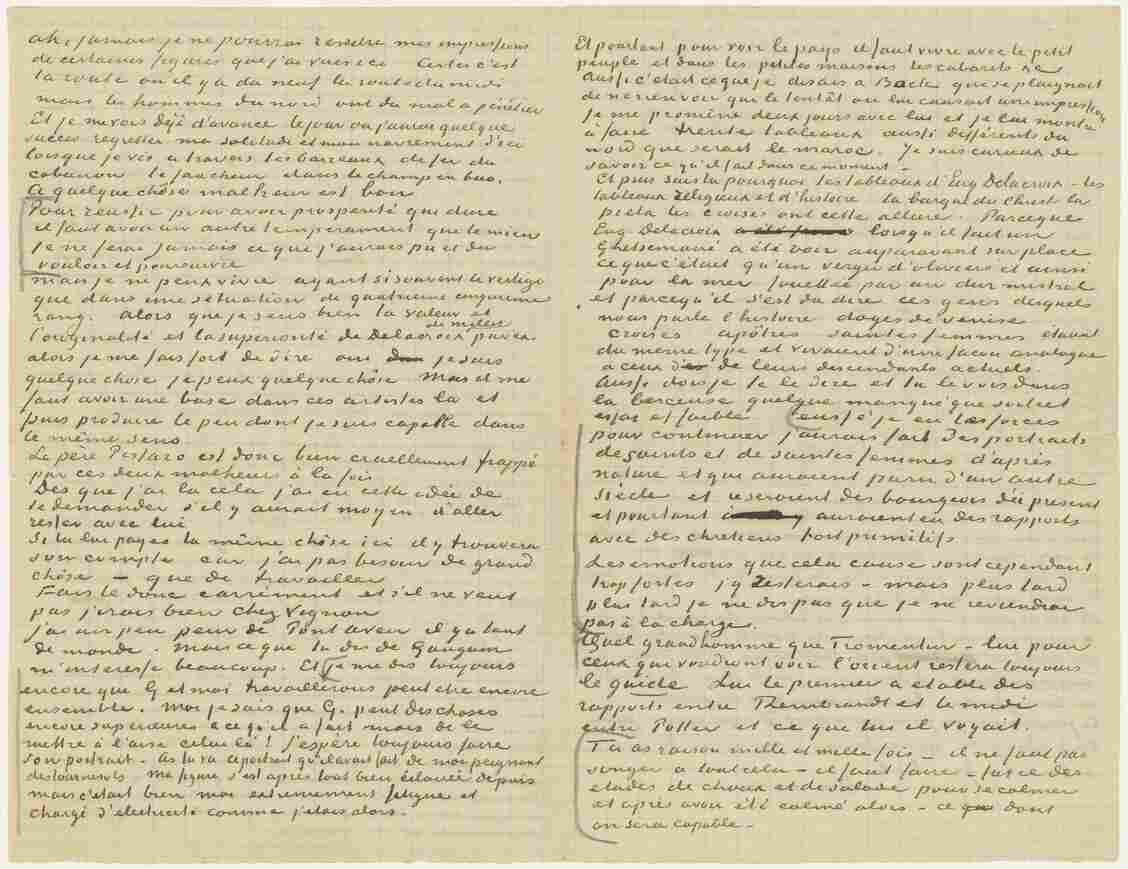 ah, jamais je ne pourrai rendre mes impressions
de certaines figures que j'ai vues ici. Certes c'est
la route où il y a du neuf la route du midi
mais les hommes du nord ont du mal à pénétrer
Et je me vois déjà d'avance le jour où j'aurai quelque
succès regretter ma solitude et mon navrement d'ici
lorsque je vis à travers les barreaux de fer du
cabanon le faucheur dans le champ en bas.
A quelque chôse malheur est bon
Pour réussir pour avoir prosperité qui dure
il faut avoir un autre temperament que le mien
je ne ferai jamais ce que j'aurais pu et dû
vouloir et poursuivre
mais je ne peux vivre ayant si souvent le vertige
que dans une situation de quatrieme cinquieme
rang. alors que je sens bien la valeur et
l'originalité et la superiorité de Delacroix
de millet par ex.
alors je me fais fort de dire oui je suis
quelque chôse je peux quelque chôse. Mais il me
faut avoir une base dans ces artistes là et
puis produire le peu dont je suis capable dans
le même sens.
Le père Pissaro est donc bien cruellement frappé
par ces deux malheurs à la fois
Dès que j'ai lu cela j'ai eu cette idée de
te demander s'il y aurait moyen d'aller
rester avec lui.
Si tu lui payes la même chôse ici il y trouvera
son compte car j'ai pas besoin de grand
chôse – que de travailler
Fais le donc carrément et s'il ne veut
pas j'irais bien chez Vignon
J'ai un peu peur de Pont aven il y a tant
de monde. Mais ce que tu dis de Gauguin
m'interesse beaucoup. Et je me dis toujours
encore que G. et moi travaillerons peut etre encore
ensemble. Moi je sais que G. peut des choses
encore superieures à ce qu'il a fait mais de le
mettre à l'aise celui là! j'espère toujours faire
son portrait. As tu vu ce portrait qu'il avait fait de moi peignant
des tournesols. Ma figure s'est apres tout bien éclairée depuis
mais c'était bien moi extremement fatigué et
chargé d'électricité comme j'étais alors.
Et pourtant pour voir le pays il faut vivre avec le petit
peuple et dans les petites maisons les cabarets &c
Aussi c'était ce que je disais à Bock qui se plaignait
de ne rien voir qui le tentât ou lui causait une impression
je me promène deux jours avec lui et je lui montre
à faire trente tableaux aussi différents du
nord que serait le maroc. Je suis curieux de
savoir ce qu'il fait dans ce moment.
Et puis sais tu pourquoi les tableaux d'Eug Delacroix – les
tableaux religieux et d'histoire la barque du Christ la
pieta les croises ont cette allure. Parceque
Eug Delacroix lorsqu'il fait un
Ghetsemané a été voir auparavant sur place
ce que c'était qu'un verger d'oliviers et ainsi
pour la mer fouettée par un dur mistral
et parcequ'il s'est du dire ces gens desquels
nous parle l'histoire doges de venise
croises apôtres saintes femmes étaient
du même type et vivaient d'une facon analogue
à ceux de leurs descendants actuels.
Aussi dois je te le dire et tu le vois dans
la berceuse quelque manqué que soit cet
essai et faible. Eussé je eu les forces
pour continuer j'aurais fait des portraits
de saints et de saintes femmes d'après
nature et qui auraient paru d'un autre
siècle et ce seraient des bourgeois du present
et pourtant auraient eu des rapports
avec des chretiens fort primitifs.
Les emotions que cela cause sont cependant
trop fortes j'y resterais – mais plus tard
plus tard je ne dis pas que je ne reviendrai
pas à la charge.
Quel grand homme que Fromentin – lui pour
ceux qui voudront voir l'orient restera toujours
le guide. Lui le premier a établi des
rapports entre Rhembrandt et le midi
entre Potter et ce que lui il voyait.
Tu as raison mille et mille fois – il ne faut pas
songer à tout cela – il faut faire – fut ce des
etudes de choux et de salade pour se calmer
et après avoir été calmé alors – ce dont
on sera capable –